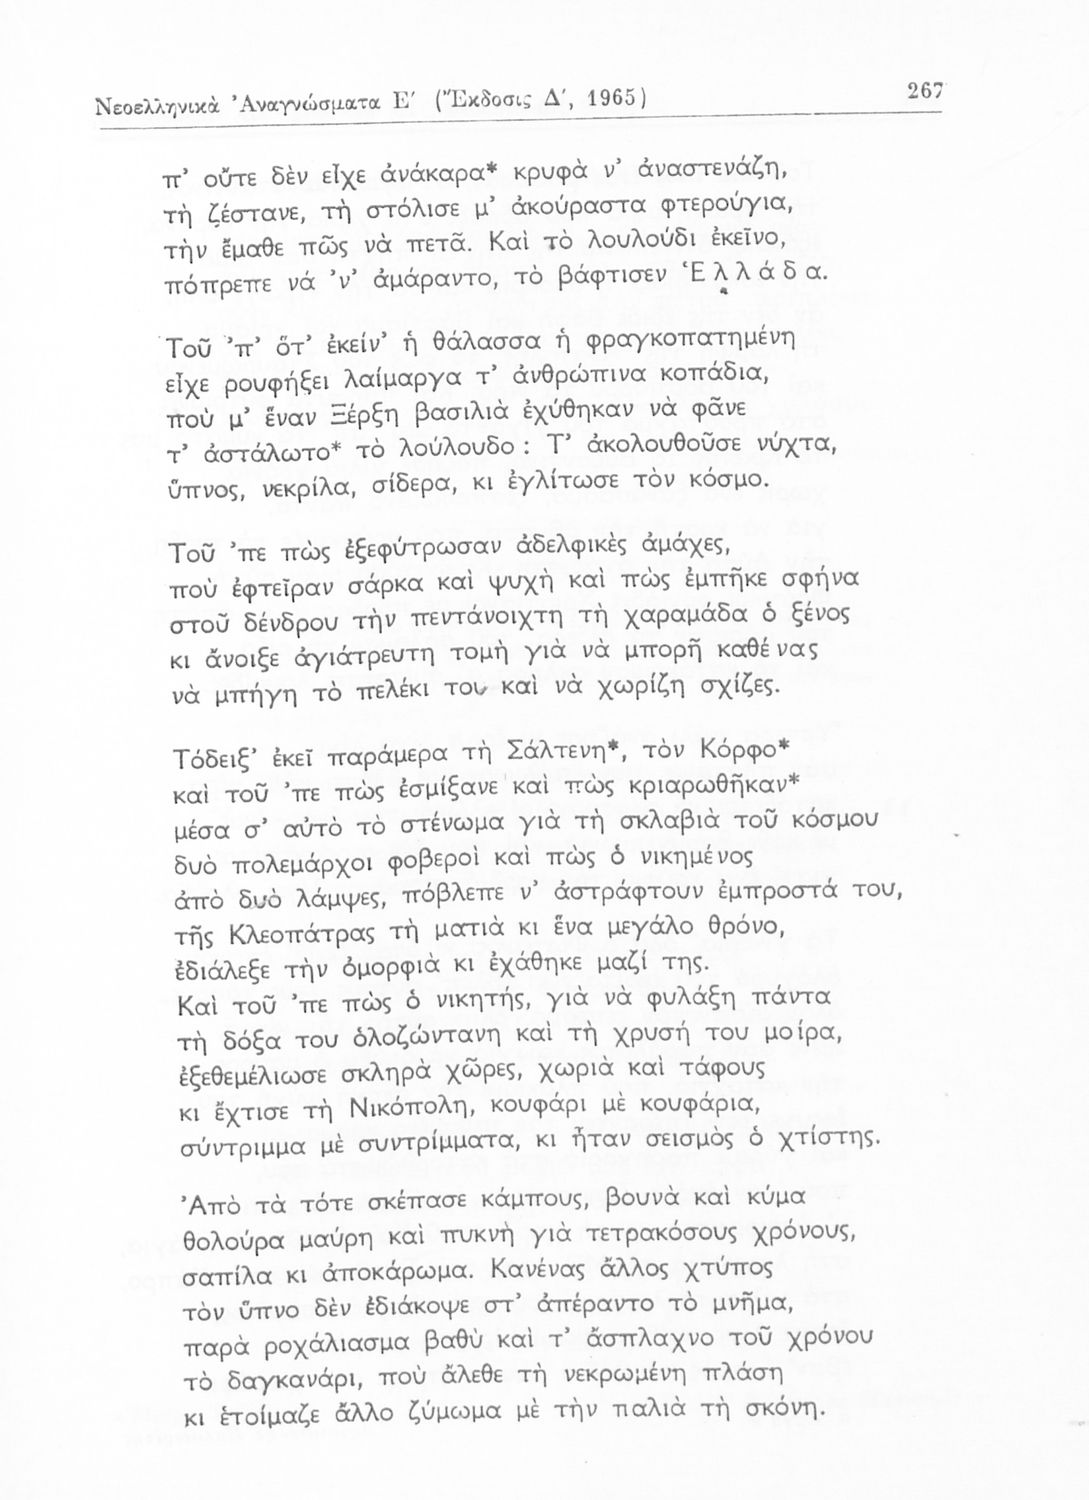 Νεοελληνικὰ Ἀναγνώσματα Ε΄ (Ἔκδοσις Δ΄, 1965) 267
π’ οὔτε δὲν εἶχε ἀνάκαρα* κρυφὰ ν’ ἀναστενάζη,
τὴ ζέστανε, τὴ στόλισε μ’ ἀκούραστα φτερούγια,
τὴν ἔμαθε πῶς νὰ πετᾶ. Καὶ τὸ λουλούδι ἐκεῖνο,
πόπρεπε νά ’ν’ ἀμάραντο, τὸ βάφτισεν Ἑ λ λ ά δ α.
Τοῦ ’π’ ὅτ’ ἐκείν’ ἡ θάλασσα ἡ φραγκοπατημένη
εἶχε ρουφήξει λαίμαργα τ’ ἀνθρώπινα κοπάδια,
ποὺ μ’ ἕναν Ξέρξη βασιλιὰ ἐχύθηκαν νὰ φᾶνε
τ’ ἀστάλωτο* τὸ λούλουδο : Τ’ ἀκολουθοῦσε νύχτα,
ὕπνος, νεκρίλα, σίδερα, κι ἐγλίτωσε τὸν κόσμο.
Τοῦ ’πε πὼς ἐξεφύτρωσαν ἀδελφικὲς ἀμάχες,
ποὺ ἐφτεῖραν σάρκα καὶ ψυχὴ καὶ πὼς ἐμπῆκε σφήνα
στοῦ δένδρου τὴν πεντάνοιχτη τὴ χαραμάδα ὁ ξένος
κι ἄνοιξε ἀγιάτρευτη τομὴ γιὰ νὰ μπορῆ καθένας
νὰ μπήγη τὸ πελέκι του καὶ νὰ χωρίζη σχίζες.
Τόδειξ’ ἐκεῖ παράμερα τὴ Σάλτενη*, τὸν Κόρφο*
καὶ τοῦ ’πε πὼς ἐσμίξανε καὶ πὼς κριαρωθῆκαν*
μέσα σ’ αὐτὸ τὸ στένωμα γιὰ τὴ σκλαβιὰ τοῦ κόσμου
δυὸ πολεμάρχοι φοβεροὶ καὶ πὼς ὁ νικημένος
ἀπὸ δυὸ λάμψες, πόβλεπε ν’ ἀστράφτουν ἐμπροστά του,
τῆς Κλεοπάτρας τὴ ματιὰ κι ἕνα μεγάλο θρόνο,
ἐδιάλεξε τὴν ὀμορφιὰ κι ἐχάθηκε μαζί της.
Καὶ τοῦ ’πε πὼς ὁ νικητής, γιὰ νὰ φυλάξη πάντα
τὴ δόξα του ὁλοζώντανη καὶ τὴ χρυσή του μοίρα,
ἐξεθεμέλιωσε σκληρὰ χῶρες, χωριὰ καὶ τάφους
κι ἔχτισε τὴ Νικόπολη, κουφάρι μὲ κουφάρια,
σύντριμμα μὲ συντρίμματα, κι ἦταν σεισμὸς ὁ χτίστης.
Ἀπὸ τὰ τότε σκέπασε κάμπους, βουνὰ καὶ κύμα
θολούρα μαύρη καὶ πυκνὴ γιὰ τετρακόσους χρόνους,
σαπίλα κι ἀποκάρωμα. Κανένας ἄλλος χτύπος
τὸν ὕπνο δὲν ἐδιάκοψε στ’ ἀπέραντο τὸ μνῆμα,
παρὰ ροχάλιασμα βαθὺ καὶ τ’ ἄσπλαχνο τοῦ χρόνου
τὸ δαγκανάρι, ποὺ ἄλεθε τὴ νεκρωμένη πλάση
κι ἑτοίμαζε ἄλλο ζύμωμα μὲ τὴν παλιὰ τὴ σκόνη.